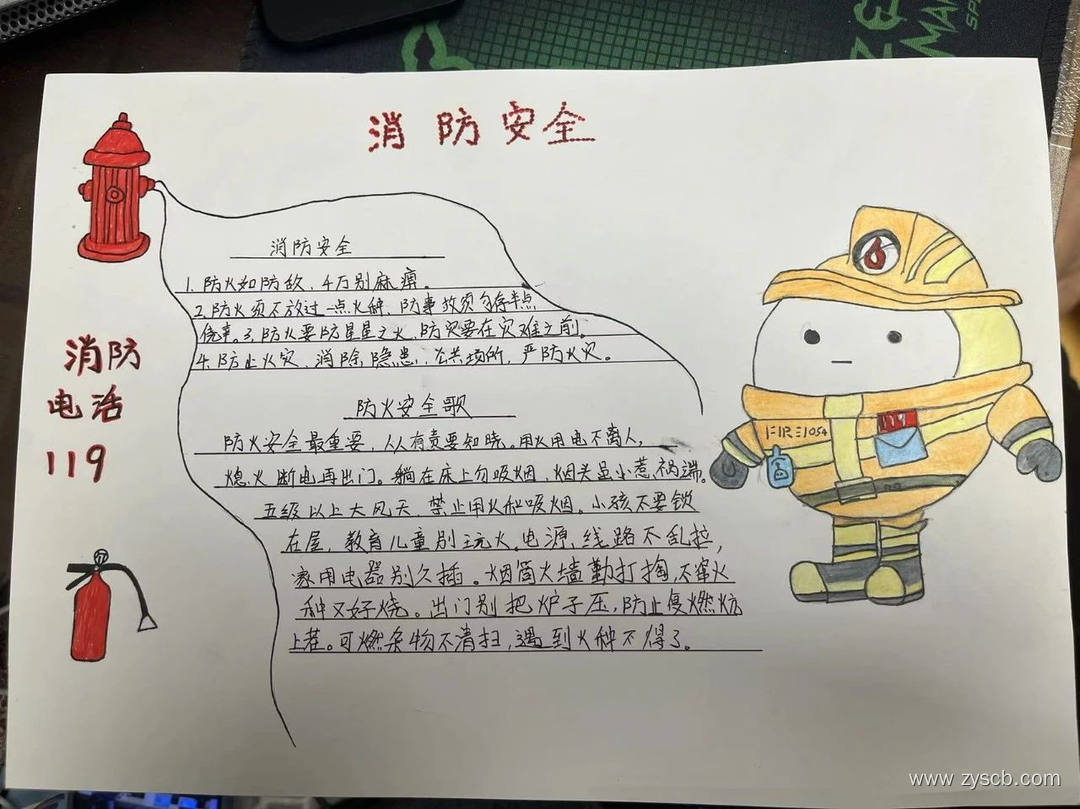 消防安全
消防安全
1.防火如防敌,千万别麻痹。
2.防火须不放过一点火种,防事故须勿存半点
侥幸。3.防火要防星星之火,防灾要在灾难之前。
4.防止火灾,消除隐患,公共场所,严防火灾。
消防
电话
119
防火安全歌
防火安全最重要,人人有责要知晓。用火用电不离人,
熄火断电再出门。躺在床上勿吸烟,烟头虽小惹祸端。
五级以上大风天,禁止用火和吸烟。小孩不要锁
在屋,教育儿童别玩火。电源、线路不乱拉,
家用电器别久插。烟筒火墙勤打掏,不窜火
种又好烧。出门别把炉子压,防止复燃炕
上茬。可燃杂物不清扫,遇到火种不得了。
119
FIRE1054
www.zyscb.com